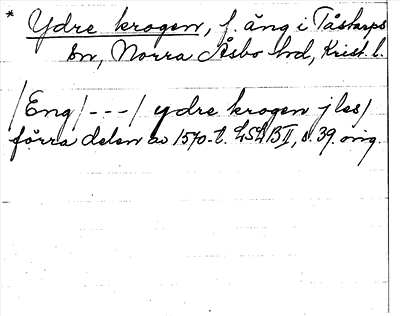 * Ydre krogen, f. äng i Tåstarps
sn, Norra Åsbo hd, Krist. l.
/Eng/---/ ydre krogen jles/
förra delen av 1570-t. LSLB II, s. 39. orig.